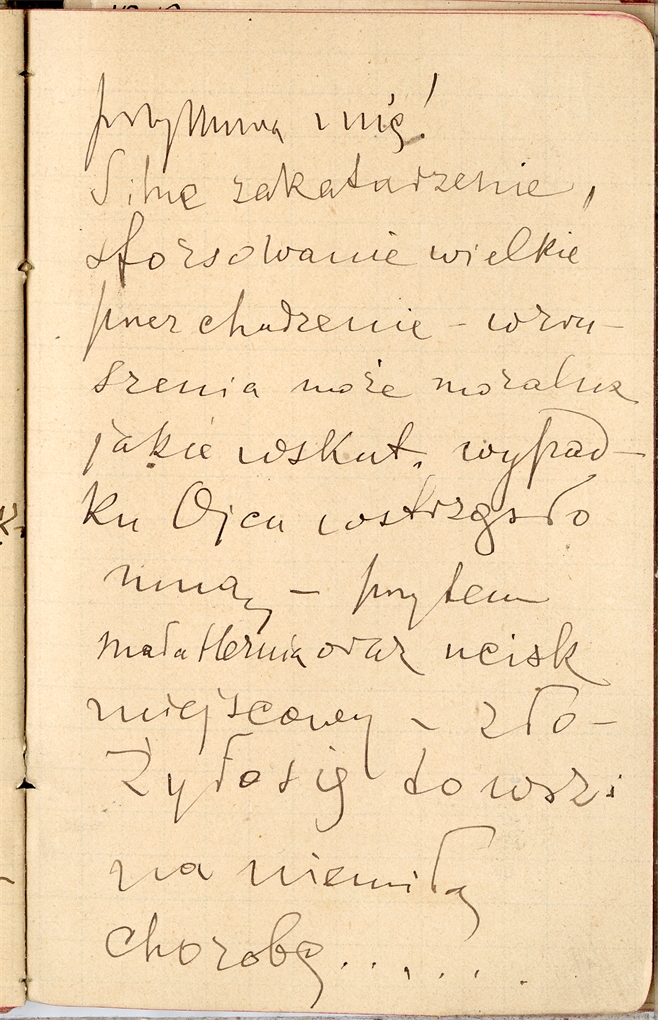 przytłumia i nię!
Silne zakatarzenie,
sforsowanie wielkie
przez chodzenie – wzru-
szenia może moralne
jakie wskut. wypad-
ku Ojca wstrzęsło
mną – przytem
mała Hernia oraz ucisk
miejscowy – zło-
żyło się to wsz.
na niemiłą
chorobę . . . . . .